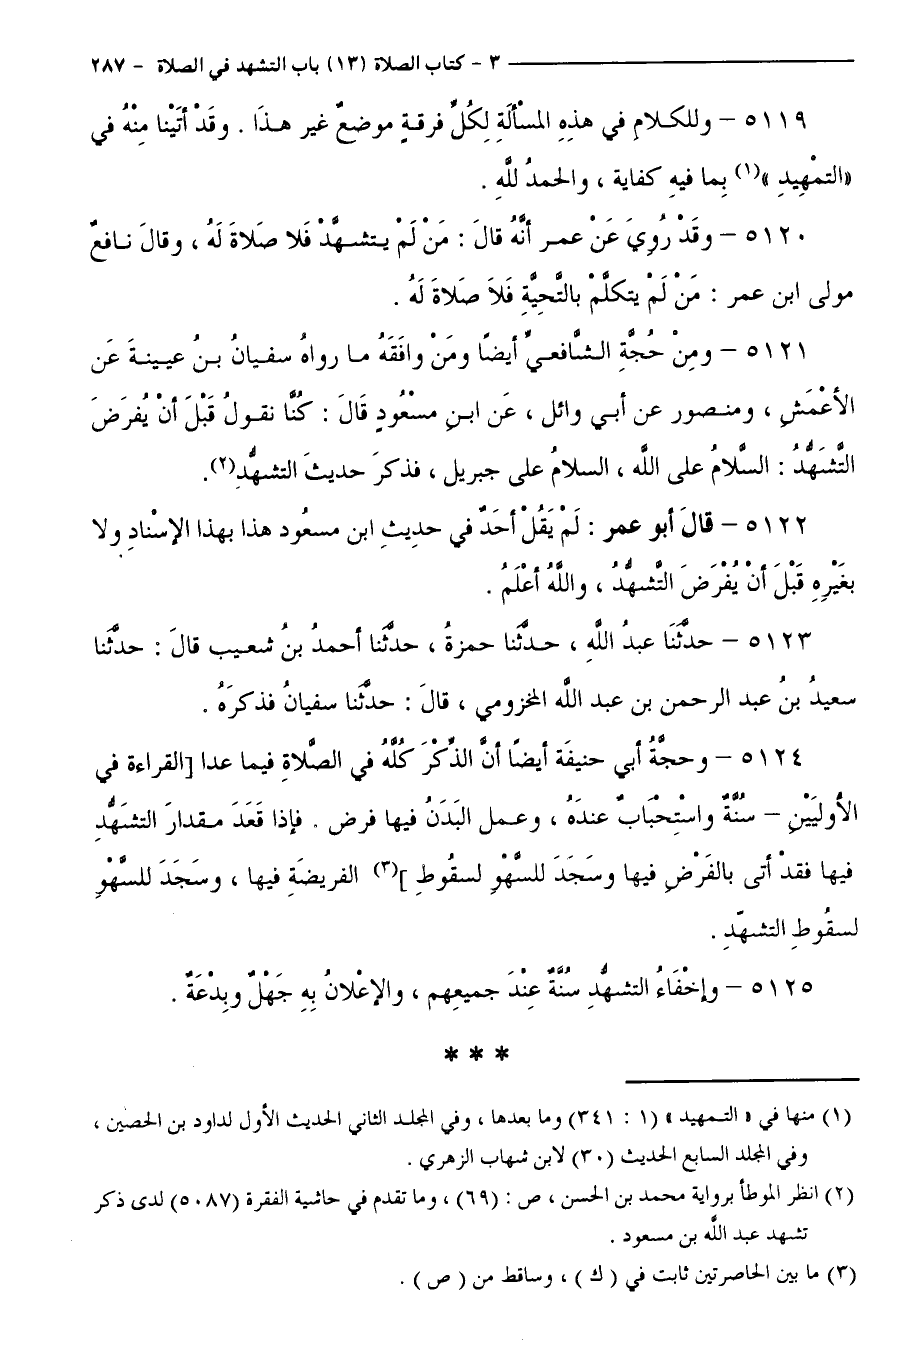 ٣ - كتاب الصلاة (١٣) باب التشهد في الصلاة - ٢٨٧
٥١١٩ – وللكلامِ في هذِهِ المسْأَلَةِ لِكُلِّ فرقةٍ موضعٌ غير هذَا . وقَدْ أتَيْنا مِنْهُ في
«التمْهِيدِ»(١) بِما فيهِ كفاية ، والحمدُ للَّهِ .
٥١٢٠ – وقَدْ رُوِيَ عَنْ عمر أنَّهُ قالَ : مَنْ لَمْ يتشهَّدْ فَلا صلاةَ لَهُ ، وقالَ نافعٌ
مولى ابن عمر : مَنْ لَمْ يتكلَّمْ بالتَّحِيَّةِ فَلاَ صَلاَةَ لَهُ .
٥١٢١ – ومِنْ حُجَّةِ الشَّافعيِّ أيضًا ومَنْ وافَقَهُ ما رواهُ سفيانُ بنُ عيينةَ عَن
الأعْمَشِ ، ومنصور عن أبي وائل ، عَن ابنِ مسْعُودٍ قالَ : كُنَّا نقولُ قَبْلَ أنْ يُفرَضَ
التَّشهُّدُ : السَّلامُ على اللَّه ، السلامُ على جبريل ، فذكرَ حديثَ التشهُّدِ(٢).
٥١٢٢ – قالَ أبو عمر : لَمْ يَقُلْ أحَدٌ في حديثِ ابن مسعُود هذا بهذا الإسْنادِ ولا
بغَيْرِهِ قَبْلَ أنْ يُفْرَضَ التَّشهُّدُ ، واللَّهُ أعْلَمُ .
٥١٢٣ – حدثَّنَا عبدُ اللَّهِ ، حدثَّنا حمزةُ ، حدثَّنا أحمدُ بنُ شعيب قالَ : حدثَّنا
سعيدُ بنُ عبد الرحمن بن عبد اللَّه المخزومي ، قالَ : حدثَّنا سفيانُ فذكرَهُ .
٥١٢٤ – وحجَّةُ أبي حنيفَة أيضًا أنَّ الذِّكْرَ كلَّهُ في الصَّلاةِ فيما عدا [القراءة في
الأولَيَيْنِ – سُنَّةٌ واستِحْبَابٌ عندَهُ ، وعمل البَدَنُ فيها فرض . فإذا قَعَدَ مقدارَ التشهُّدِ
فيها فقدْ أتى بالفَرْضِ فيها وسَجَدَ للسَّهْوِ لسقُوطِ ](٣) الفريضَةِ فيها ، وسَجَدَ للسَّهْوِ
لسقُوطِ التشهّدِ .
٥١٢٥ – وإخْفَاءُ التشهُّدِ سُنَّةٌ عِنْدَ جميعِهم ، والإعْلانُ بِهِ جَهْلٌ وبِدْعَةٌ .
* * *
(١) منها في « التمهيد » (١ : ٣٤١) وما بعدها ، وفي المجلد الثاني الحديث الأول لداود بن الحصين ،
وفي المجلد السابع الحديث (٣٠) لابن شهاب الزهري .
(٢) انظر الموطأ برواية محمد بن الحسن ، ص : (٦٩) ، وما تقدم في حاشية الفقرة (٥٠٨٧) لدى ذكر
تشهد عبد اللَّه بن مسعود .
(٣) ما بين الحاصرتين ثابت في ( ك ) ، وساقط من ( ص ) .